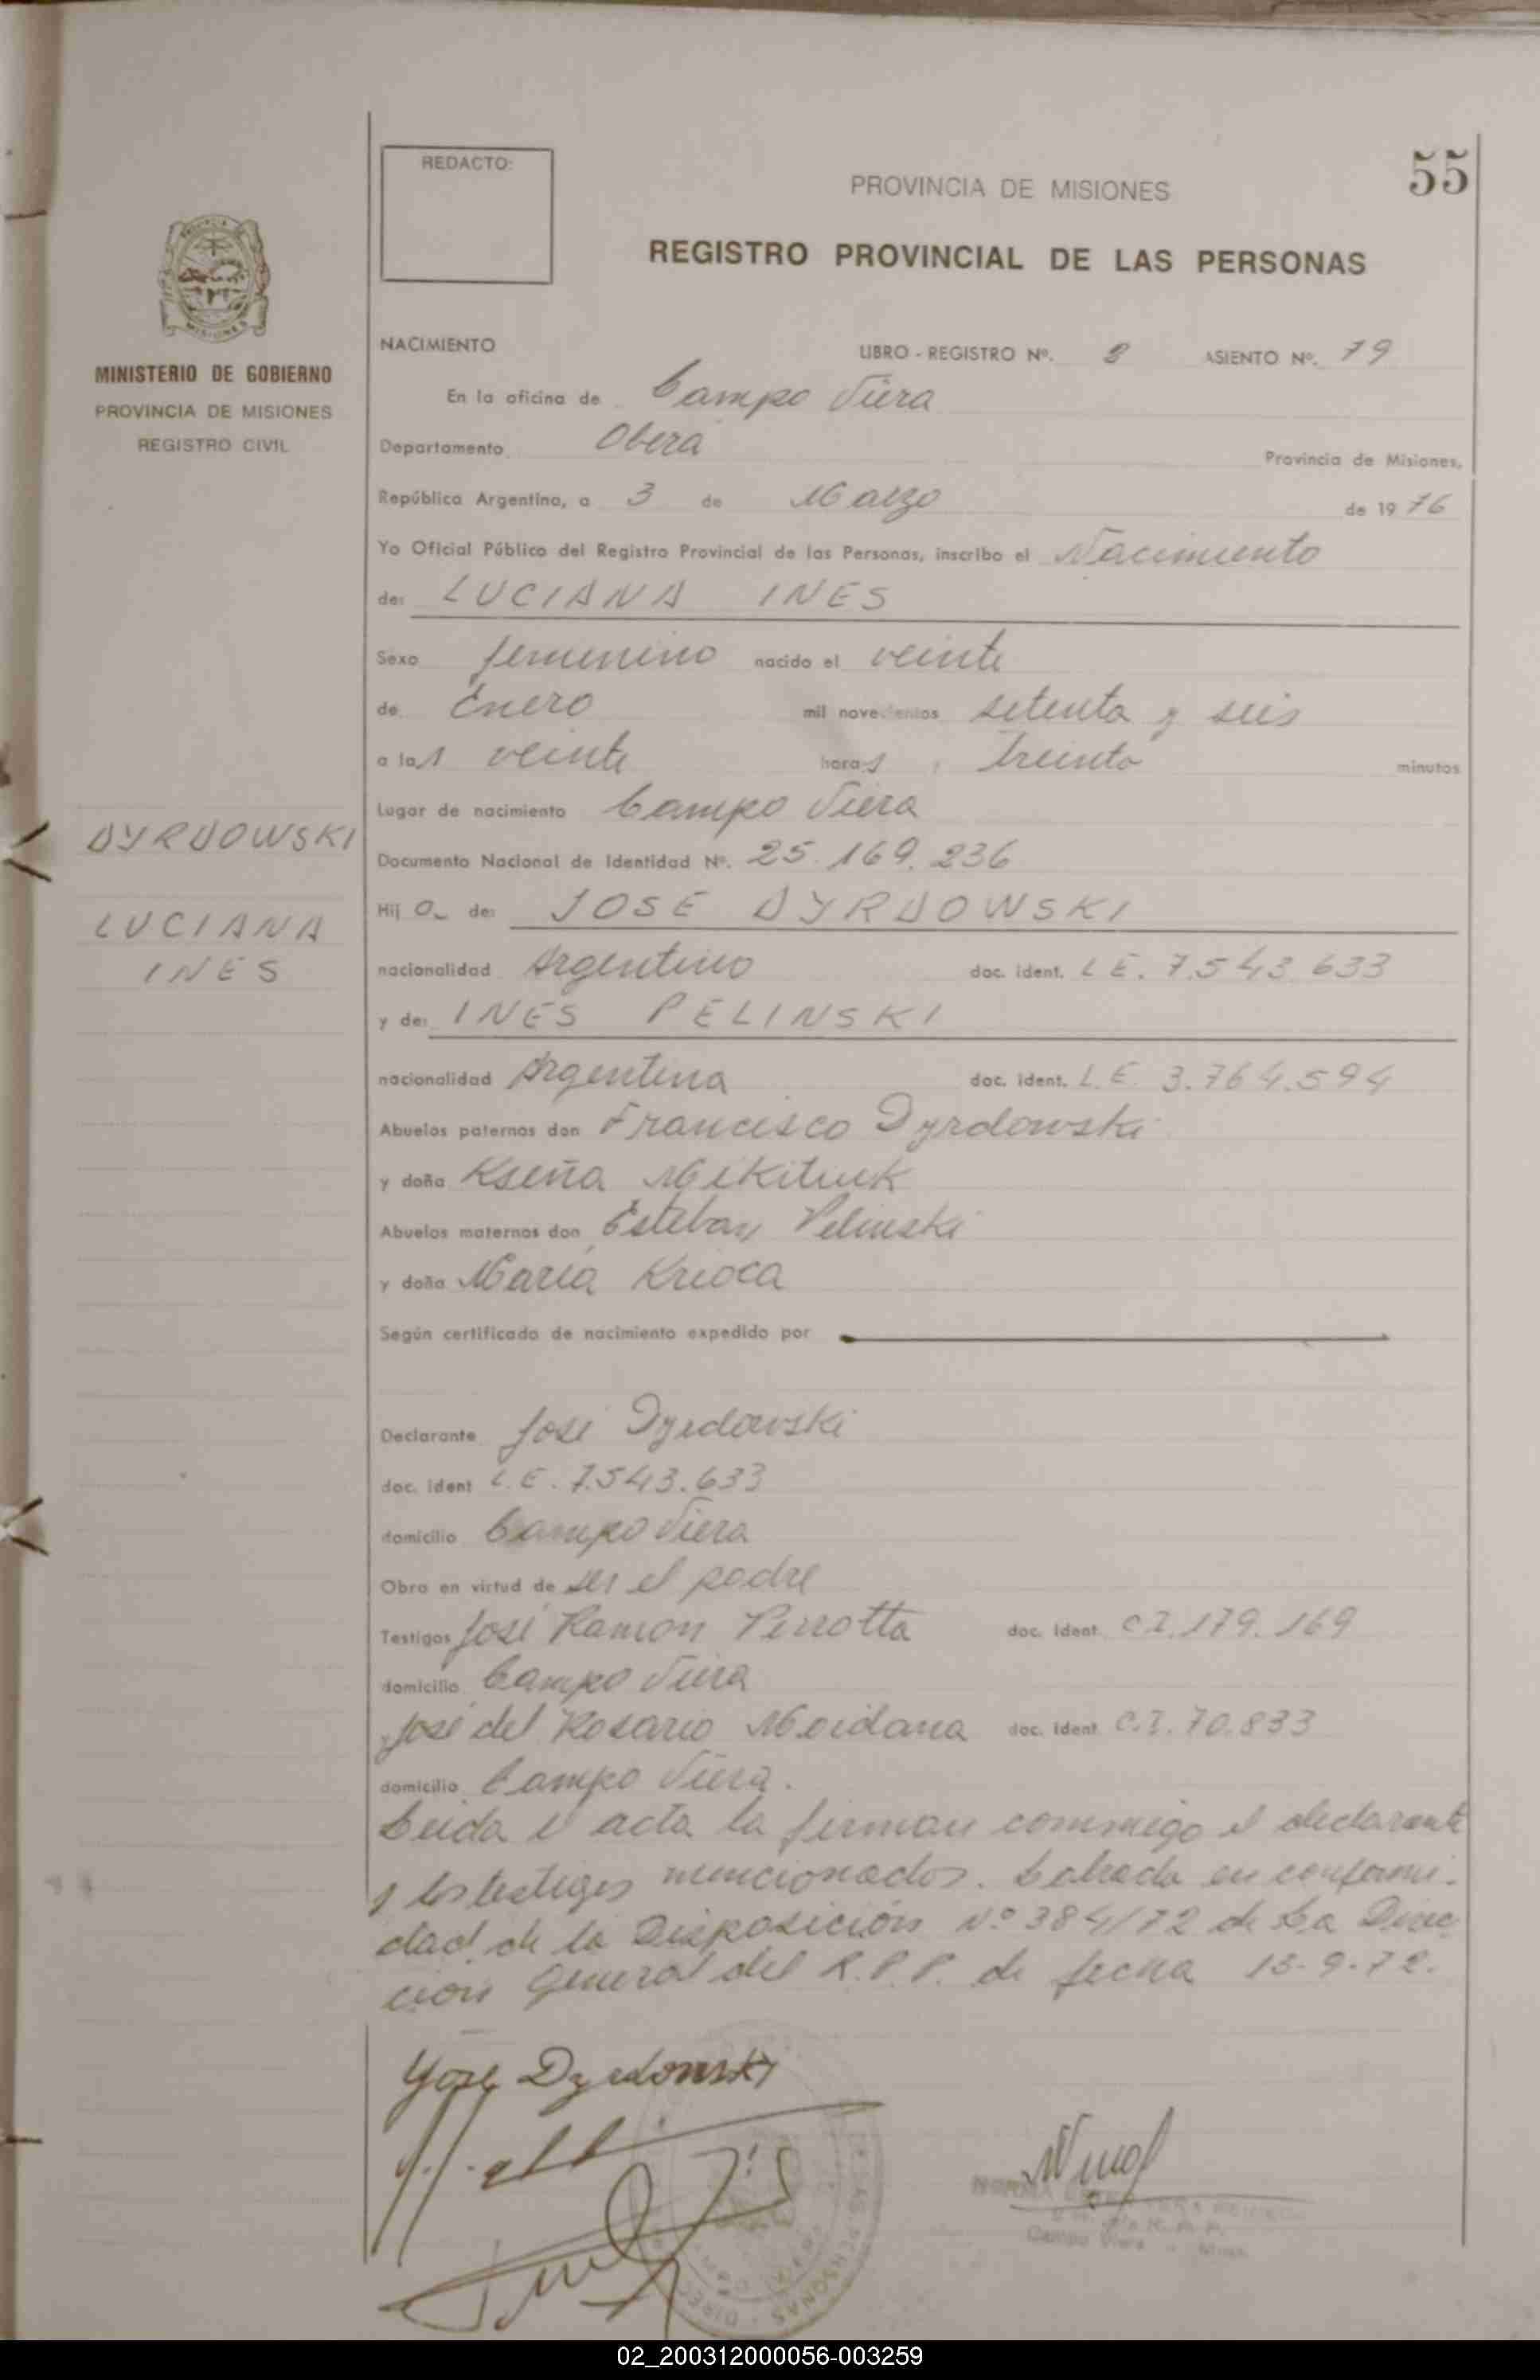 REDACTO:
55
PROVINCIA DE MISIONES
REGISTRO PROVINCIAL DE LAS PERSONAS
MISIONES
MINISTERIO DE GOBIERNO
PROVINCIA DE MISIONES
REGISTRO CIVIL
NACIMIENTO LIBRO - REGISTRO Nº. 8 ASIENTO Nº. 79
En la oficina de Campo Viera
Departamento Oberá Provincia de Misiones,
República Argentina, a 3 de Marzo de 19 76
Yo Oficial Público del Registro Provincial de las Personas, inscribo el Nacimiento
de: LUCIANA INES
Sexo femenino nacido el veinte
de Enero mil novecientos setenta y seis
a las veinte horas, treinta minutos
Lugar de nacimiento Campo Viera
DYRDOWSKI
Documento Nacional de Identidad Nº. 25.169.236
LUCIANA
INES
Hij a de: JOSE DYRDOWSKI
nacionalidad Argentino doc. ident. L E. 7.543.633
y de: INES PELINSKI
nacionalidad Argentina doc. ident. L.E. 3.764.594
Abuelos paternos don Francisco Dyrdowski
y doña Kseña Mikitiuk
Abuelos maternos don Esteban Pelinski
y doña María Krioca
Según certificado de nacimiento expedido por
Declarante José Dyrdowski
doc. ident L.E. 7.543.633
domicilio Campo Viera
Obra en virtud de ser el padre
Testigos José Ramon Perrotta doc. ident. C.I. 179.169
domicilio Campo Viera
y José del Rosario Moidana doc. ident. C.I. 70.833
domicilio Campo Viera.
Leida el acta la firman conmigo el declarante
y los testigos mencionados. Labrada en conformi-
dad de la Disposición Nº 384/72 de La Direc
ción General del R.P.P. de fecha 13-9-72.
Yose Dyrdowski
Campo Viera
02_200312000056-003259